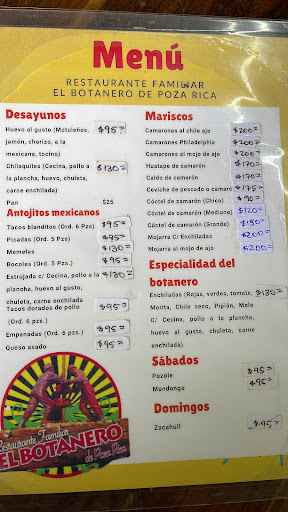 Menú
RESTAURANTE FAMILIAR
EL BOTANERO DE POZA RICA
Desayunos
Huevo al gusto (Motuleños, $95=
jamón, chorizo, a la
mexicana, tocino)
Chilaquiles (Cecina, pollo a $130=
la plancha, huevo, chuleta,
carne enchilada)
Pan $25
Antojitos mexicanos
Tacos blanditos (Ord. 6 Pzs) $95=
Picadas (Ord. 5 Pzs) $95=
Memelas $130=
Bocoles (Ord. 5 Pzs.) $95=
Estrujada c/ (Cecina, pollo a la $130=
plancha, huevo al gusto,
chuleta, carne enchilada
Tacos dorados de pollo $95=
(Ord. 6 pzs.)
Empanadas (Ord. 6 Pzs) $95=
Queso asado $95=
Restaurante Familiar
EL BOTANERO
de Poza Rica
Mariscos
Camarones al chile ajo $200=
Camarones Philadelphia $200=
Camarones al mojo de ajo $200=
Huatape de camarón $170=
Caldo de camarón $170=
Ceviche de pescado o camarón $175=
Cóctel de camarón (Chico) $90=
Cóctel de camarón (Mediano) $120=
Cóctel de camarón (Grande) $150=
Mojarra C/ Enchiladas $200=
Mojarra al mojo de ajo $200=
Especialidad del
botanero
Enchiladas (Rojas, verdes, tomate, $130=
Morita, Chile seco, Pipián, Mole
C/ Cecina, pollo a la plancha,
huevo al gusto, chuleta, carne
enchilada)
Sábados
Pozole $95=
Mondongo $95=
Domingos
Zacahuil $95=